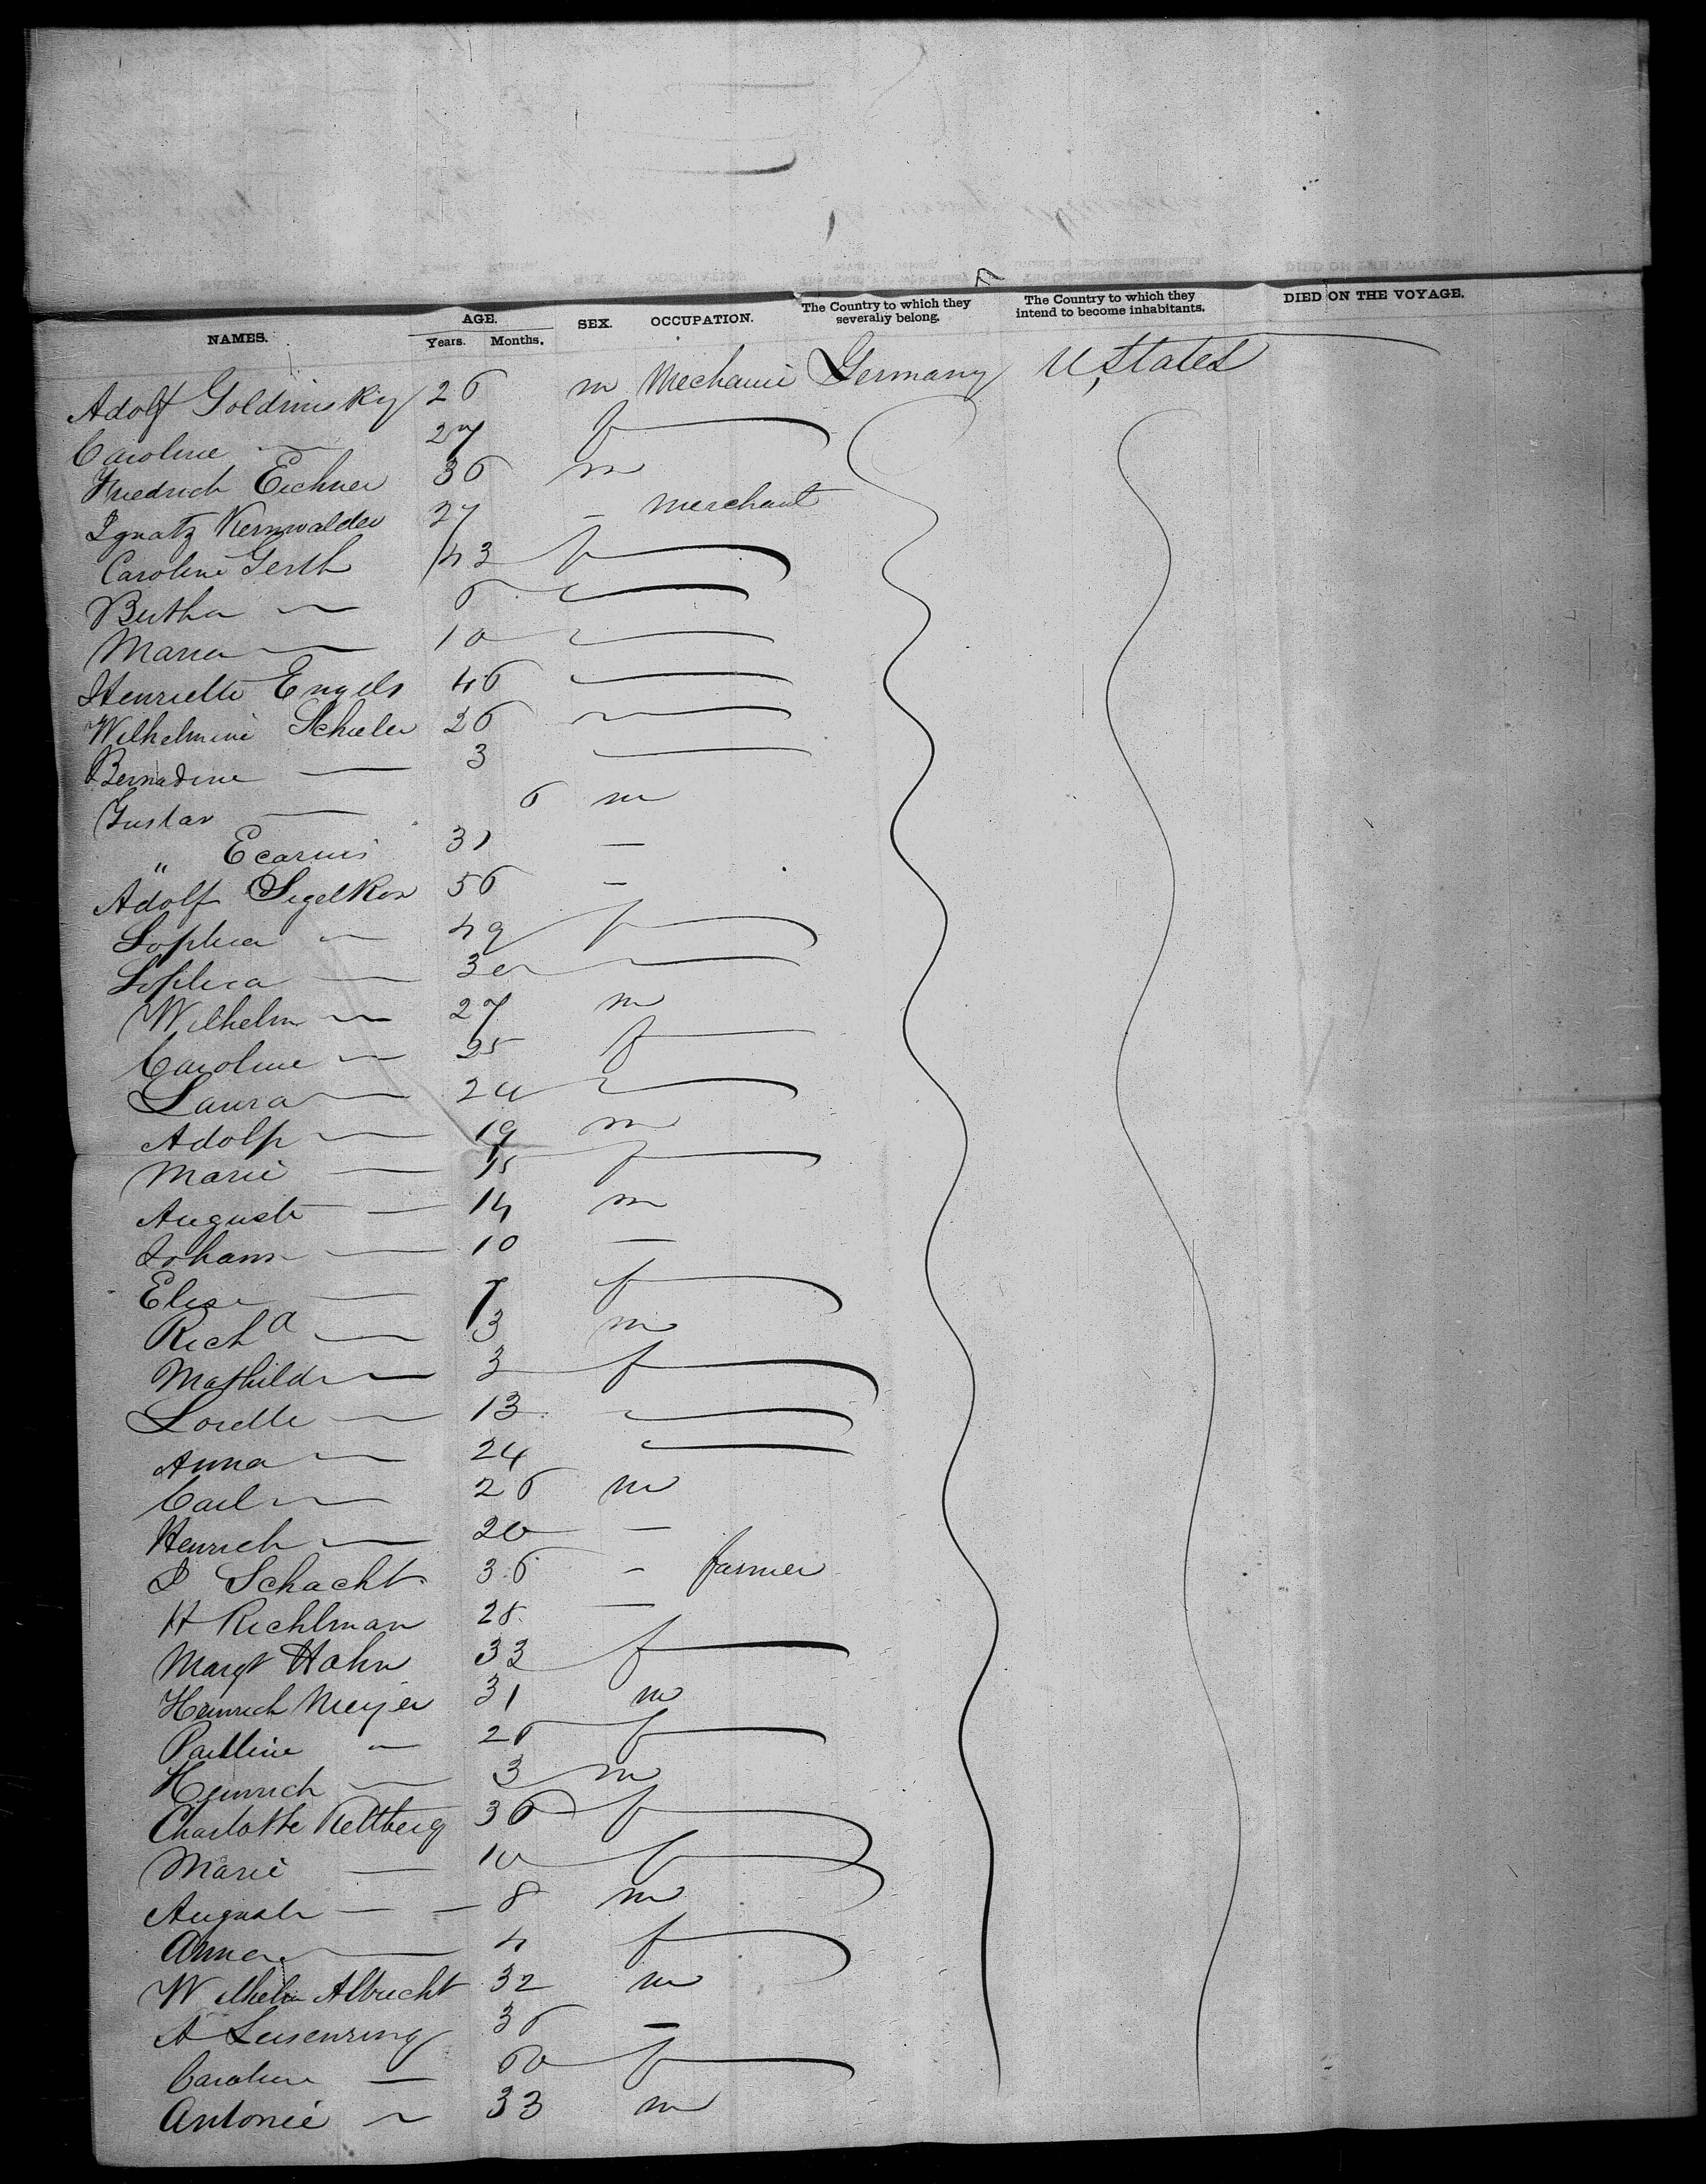 NAMES. AGE. Years. Months. SEX. OCCUPATION. The Country to which they severally belong. The Country to which they intend to become inhabitants. DIED ON THE VOYAGE.
Adolf Goldminsky 26 m Mechanic Germany U States
Caroline — 27 f
Friedrich Eichner 36 m
Ignatz Kernwalder 27 — merchant
Caroline Gerth 43 f
Bertha — 6
Maria — 10
Henriette Engels 46
Wilhelmine Schieler 26
Bernadine — 3
Gustav — 6 m
" Ecarius 31 —
Adolf Segelkon 56 —
Sophia — 49 f
Sophia — 30
Wilhelm — 27 m
Caroline — 25 f
Laura — 20
Adolf — 19 m
Marie — 15 f
Auguste — 14 m
Johann — 10 —
Elise — 7 f
Richd — 3 m
Mathilde — 3 f
Lorette — 13
Anna — 24
Carl — 26 m
Henrich — 20 —
J Schacht 36 — farmer
H Richlman 28 —
Margt Hahn 33 f
Heinrich Meyer 31 m
Pauline — 26 f
Heinrich — 3 m
Charlotte Rettberg 36 f
Marie — 10 f
Auguste — 8 m
Anna — 4 f
Wilhelm Albrecht 32 m
A Leisenring 36 —
Caroline — 60 f
Antonie — 33 m